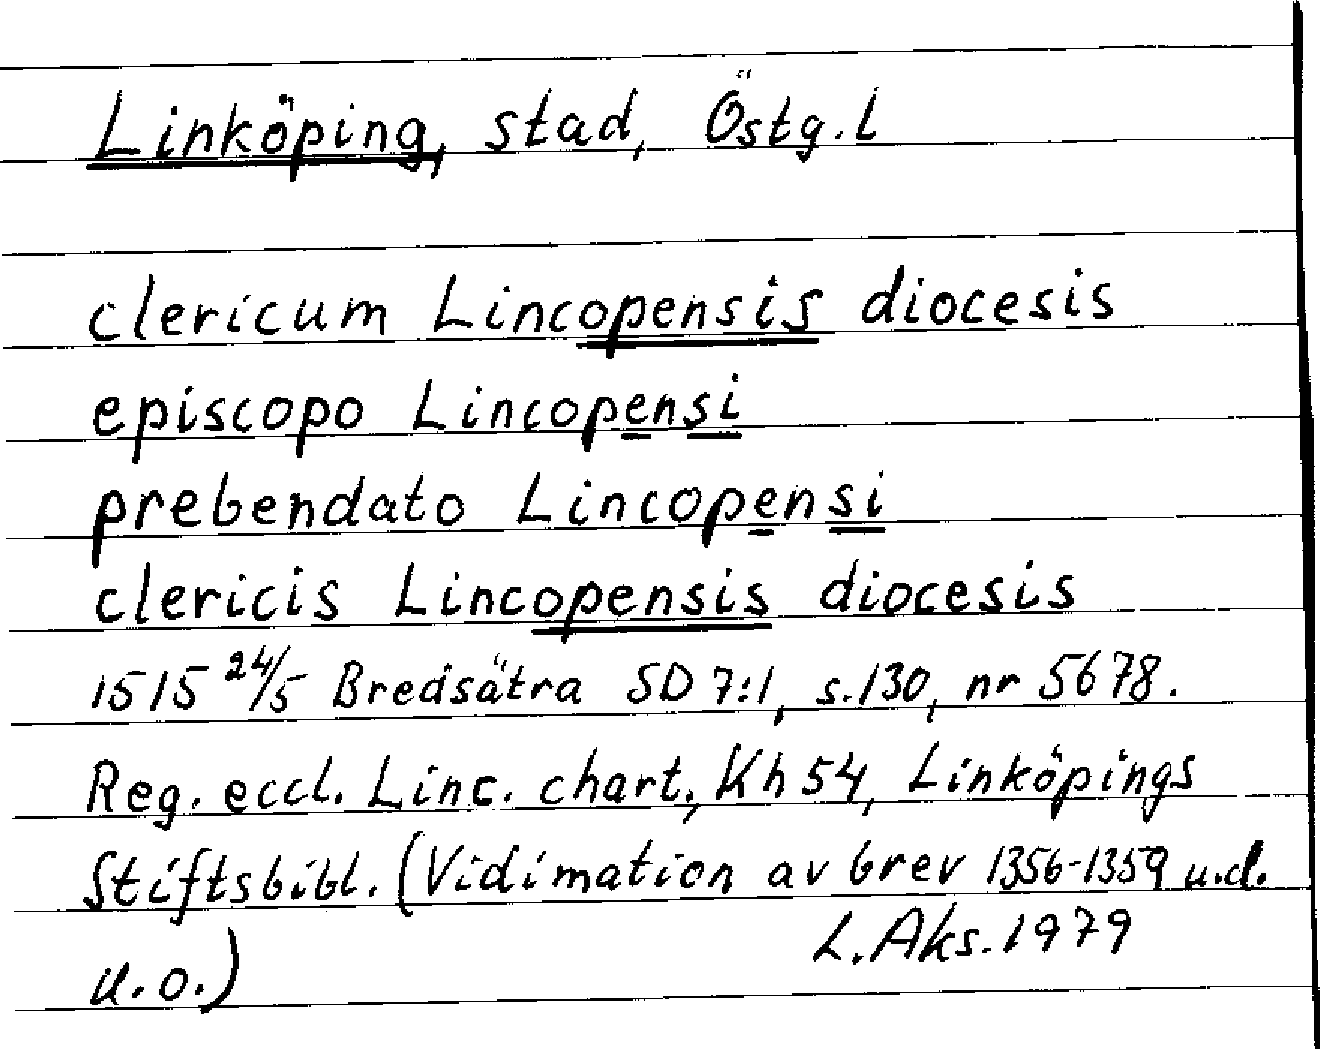 Linköping, stad, Östg.l
clericum Lincopensis diocesis
episcopo Lincopensi
prebendato Lincopensi
clericis Lincopensis diocesis
1515 24/5 Bredsätra SD 7:1, s.130, nr 5678.
Reg. eccl. Linc. chart., Kh 54, Linköpings
Stiftsbibl. (Vidimation av brev 1356-1359 u.d.
u.o.)
L. Aks. 1979